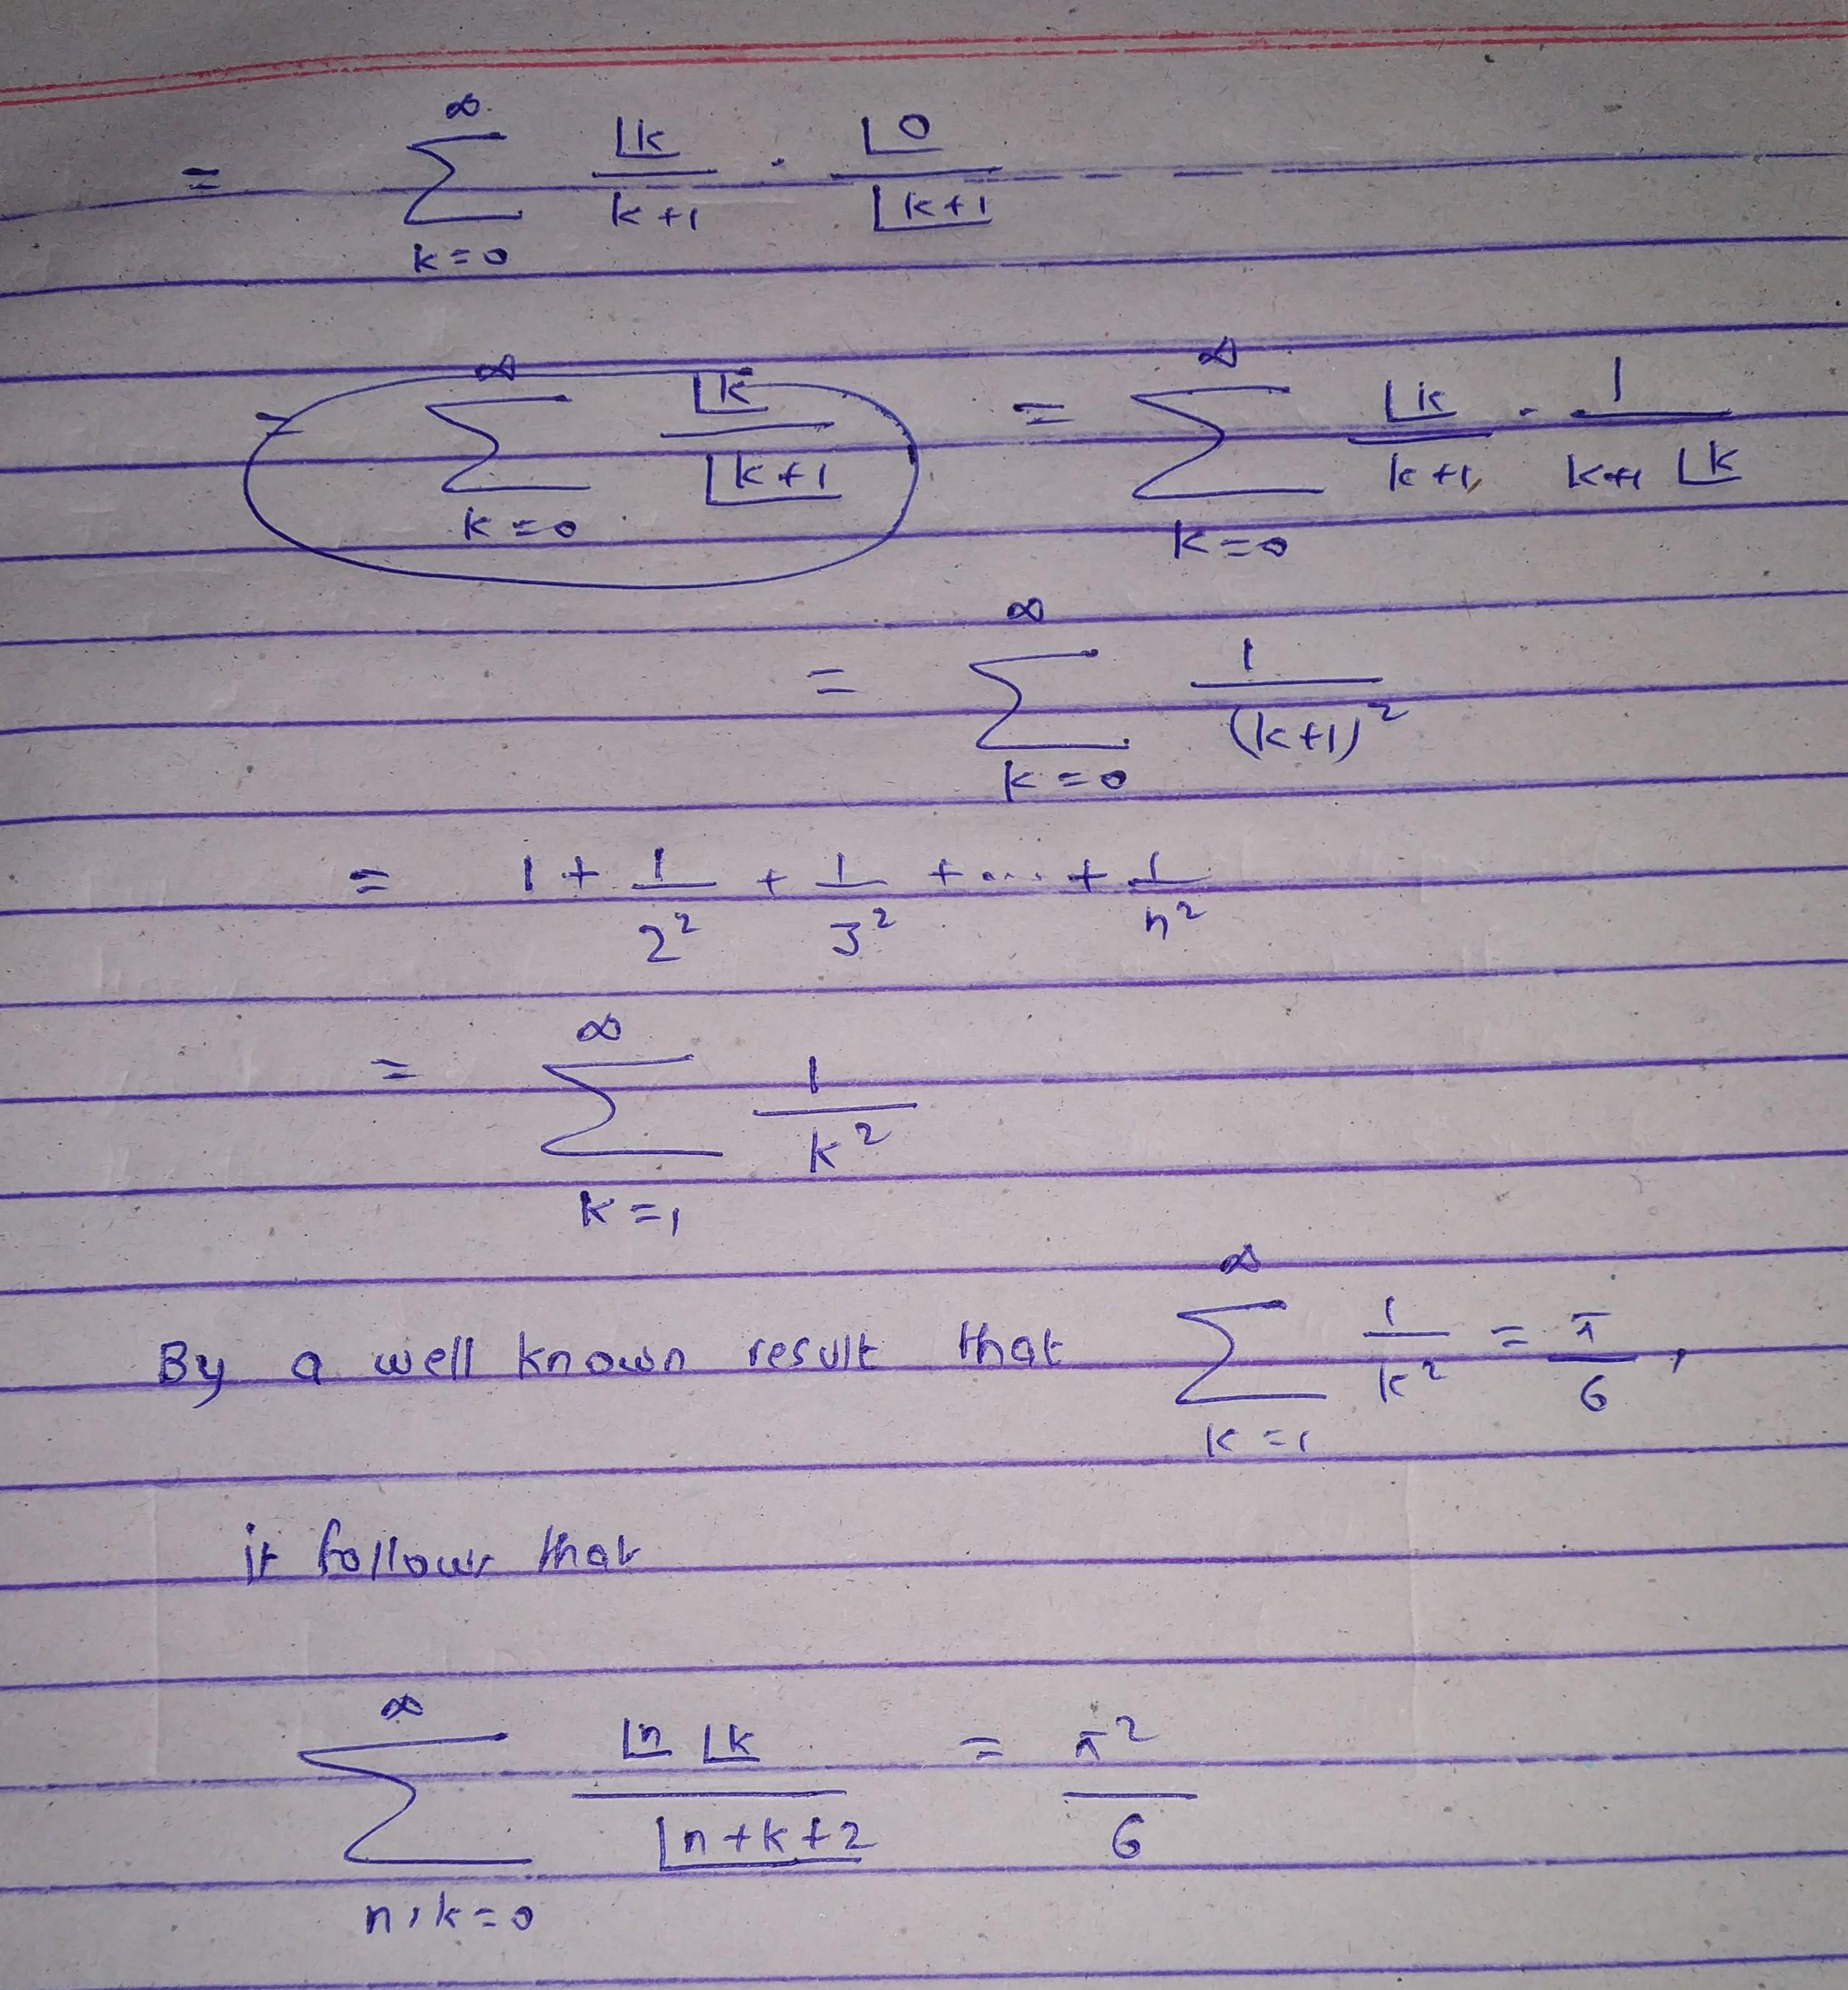 = ∞ ∑ k=0 ⌊k / k+1 · ⌊0 / ⌊k+1
= ∞ ∑ k=0 ⌊k / ⌊k+1 = ∞ ∑ k=0 ⌊k / k+1 · 1 / k+1 ⌊k
= ∞ ∑ k=0 1 / (k+1)²
= 1 + 1/2² + 1/3² + ... + 1/n²
= ∞ ∑ k=1 1 / k²
By a well known result that ∞ ∑ k=1 1 / k² = π / 6 ,
it follows that
∞ ∑ n,k=0 ⌊n ⌊k / ⌊n+k+2 = π² / 6